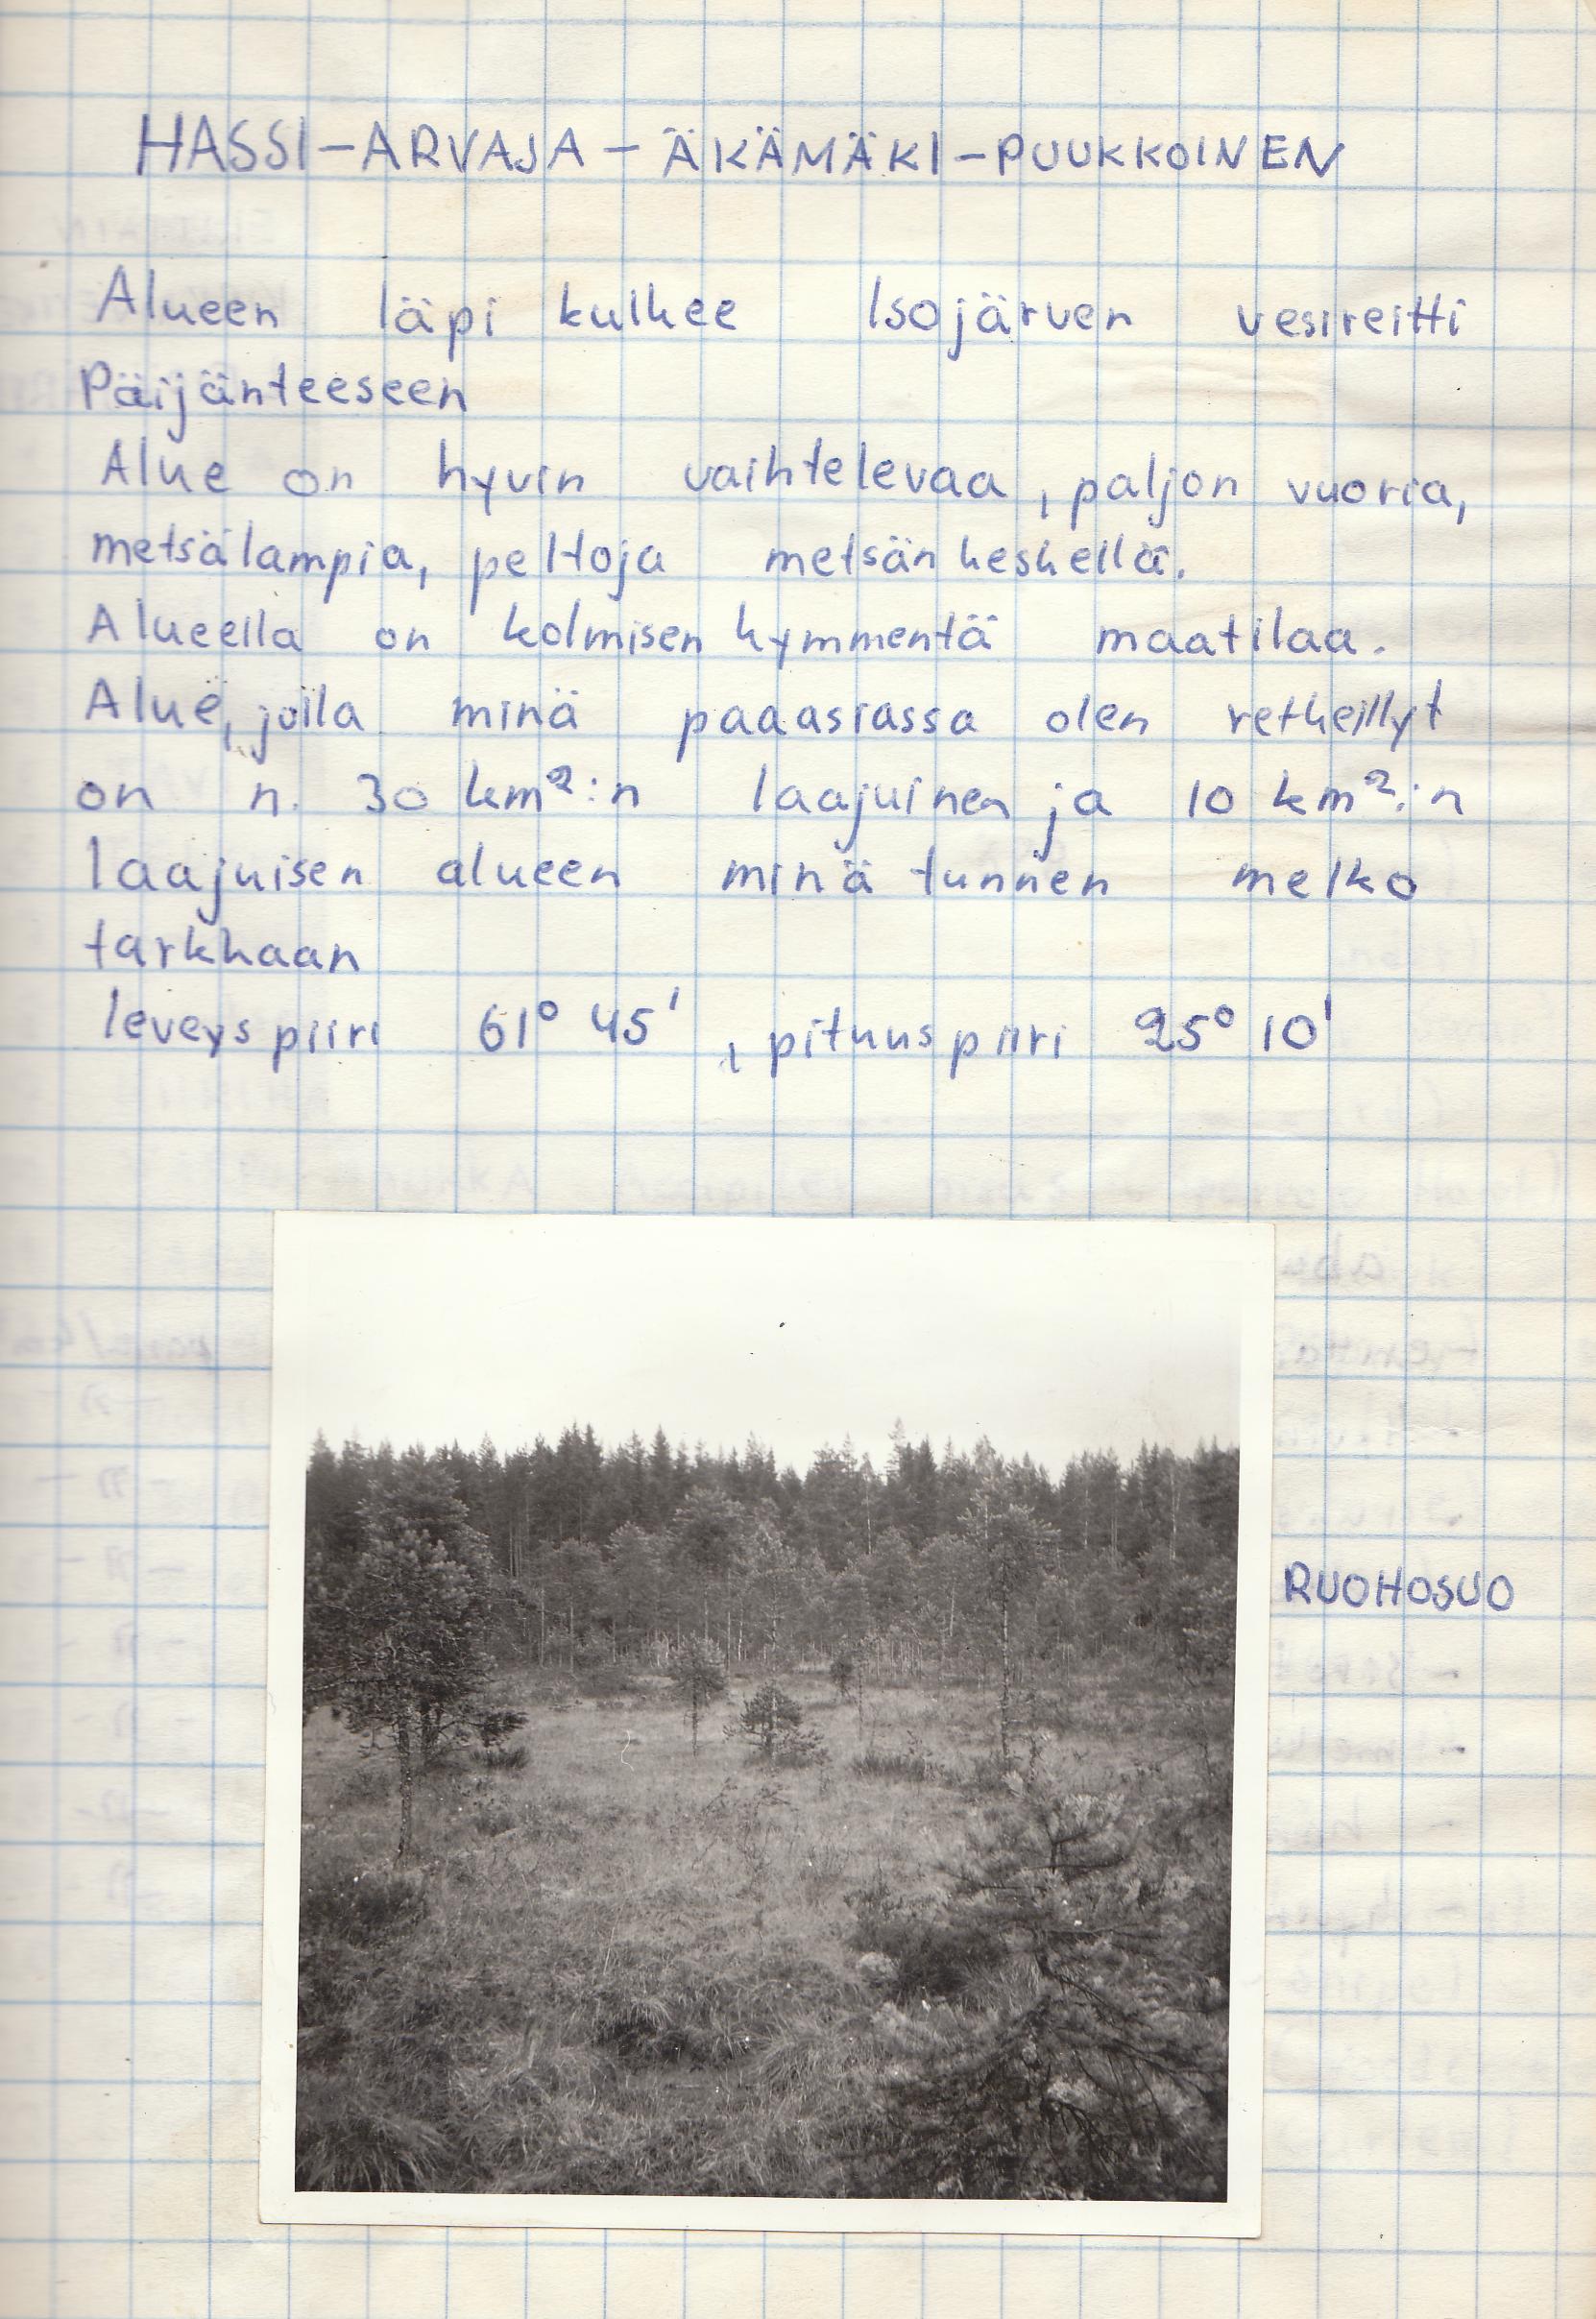 HASSI-ARVAJA-ÄKÄMÄKI-PUUKKOINEN
Alueen läpi kulkee Isojärven vesireitti
Päijänteeseen
Alue on hyvin vaihtelevaa, paljon vuoria,
metsälampia, peltoja metsän keskellä.
Alueella on kolmisen kymmentä maatilaa.
Alue, jolla minä pääasiassa olen retkeillyt
on n. 30 km²:n laajuinen ja 10 km²:n
laajuisen alueen minä tunnen melko
tarkkaan
leveyspiiri 61° 45', pituuspiiri 25° 10'
RUOHOSUO